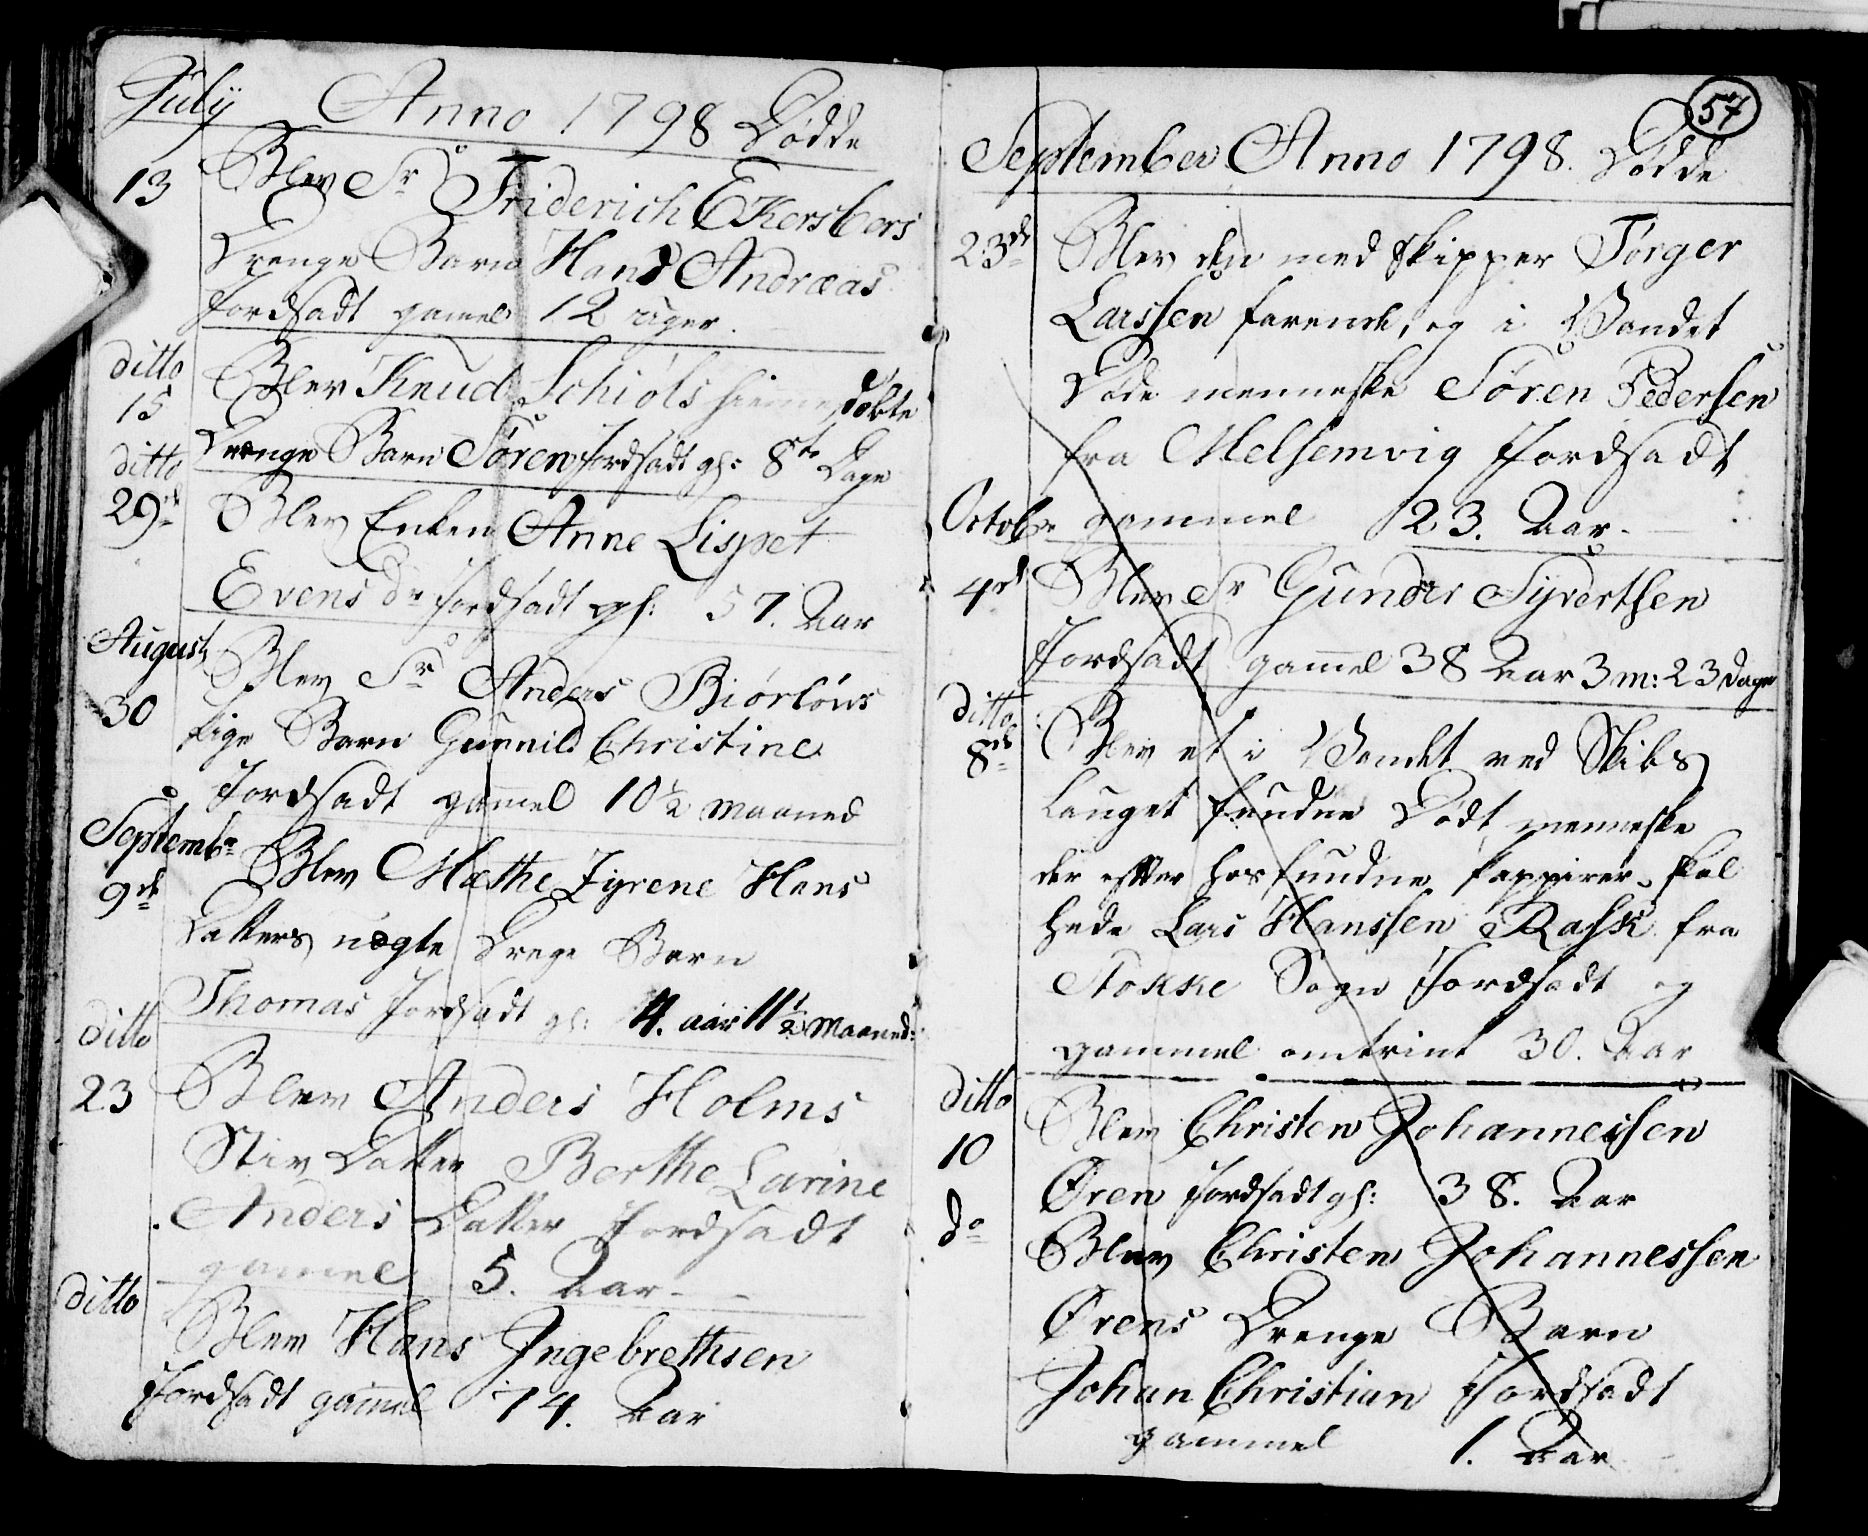 July Anno 1798 Dödde
13 Blev Sr Friderich Ekersbers
Drenge Barn Hans Andreas
Jordsadt gamel 12 uger.
ditto 15 Blev Knud Schiöls hiemme döbte
Drenge Barn Sören Jordsadt gl: 8te Dage
ditto 29de Blev Enken Anne Lispet
Evens dr Jordsadt gl: 57. Aar
August 30 Blev Sr Anders Biörlöws
Pige Barn Gunnild Christine
Jordsadt gamel 10½ Maaned
Septembr 9de Blev Mæthe Jyrene Hans
Datters uægte Drege Barn
Thomas Jordsadt gl: 4. aar 11½ Maaned:
ditto 23 Blev Anders Holms
Stiv Datter Berthe Larine
Anders Datter Jordsadt
gammel 5. Aar
ditto Blev Hans Jngebrethsen
Jordsadt gamel 74. Aar
57
September Anno 1798. Dödde
23de Blev den med Skipper Torger
Larssen farende, og i Vandet
Döde menneske Sören Pedersen
fra Melsemvig Jordsadt
gammel 23. Aar
Octobr 4de Blev Sr Gunder Syvertsen
Jordsadt gamel 38 Aar 3 m: 23 Dage
ditto 8de Blev et i Vandet ved Skibs
Lauget fundne Dödt menneske
der efter hos fundne Pappirer skal
hede Lars Hanssen Rask fra
Stokke Sogn Jordsadt og
gammel omtrint 30. Aar
ditto 10 Blev Christen Johannessen
Ören Jordsadt gl: 38. Aar
do Blev Christen Johannessen
Örens Drenge Barn
Johan Christian Jordsadt
gammel 1. Aar